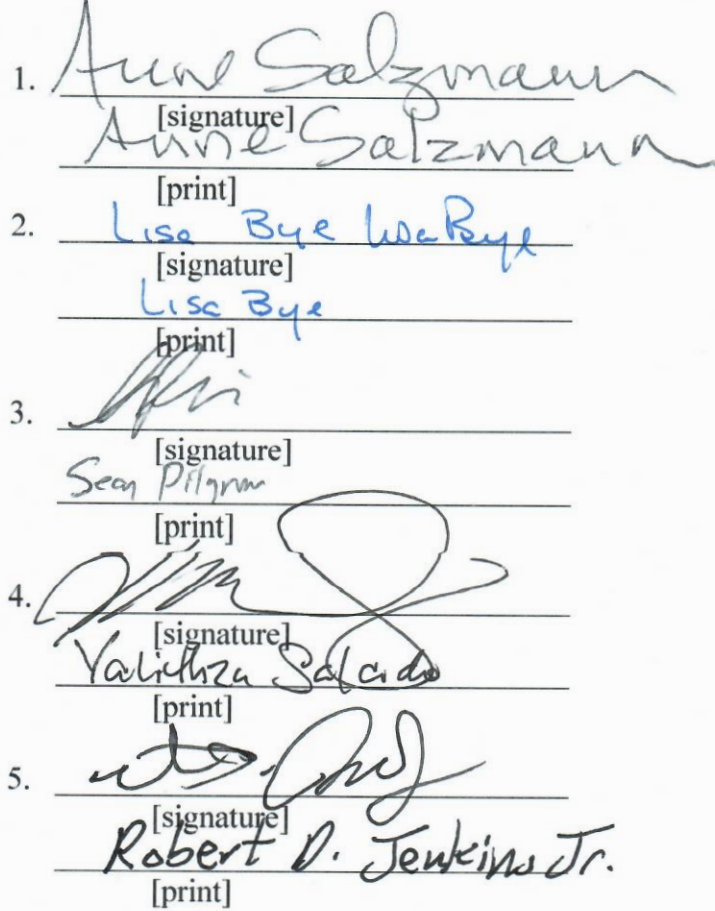 1. Anne Salzmann
[signature]
Anne Salzmann
[print]
2. Lisa Bye Lisa Bye
[signature]
Lisa Bye
[print]
3.
[signature]
Sean Pilgrim
[print]
4.
[signature]
Yalithza Salcido
[print]
5.
[signature]
Robert D. Jenkins Jr.
[print]